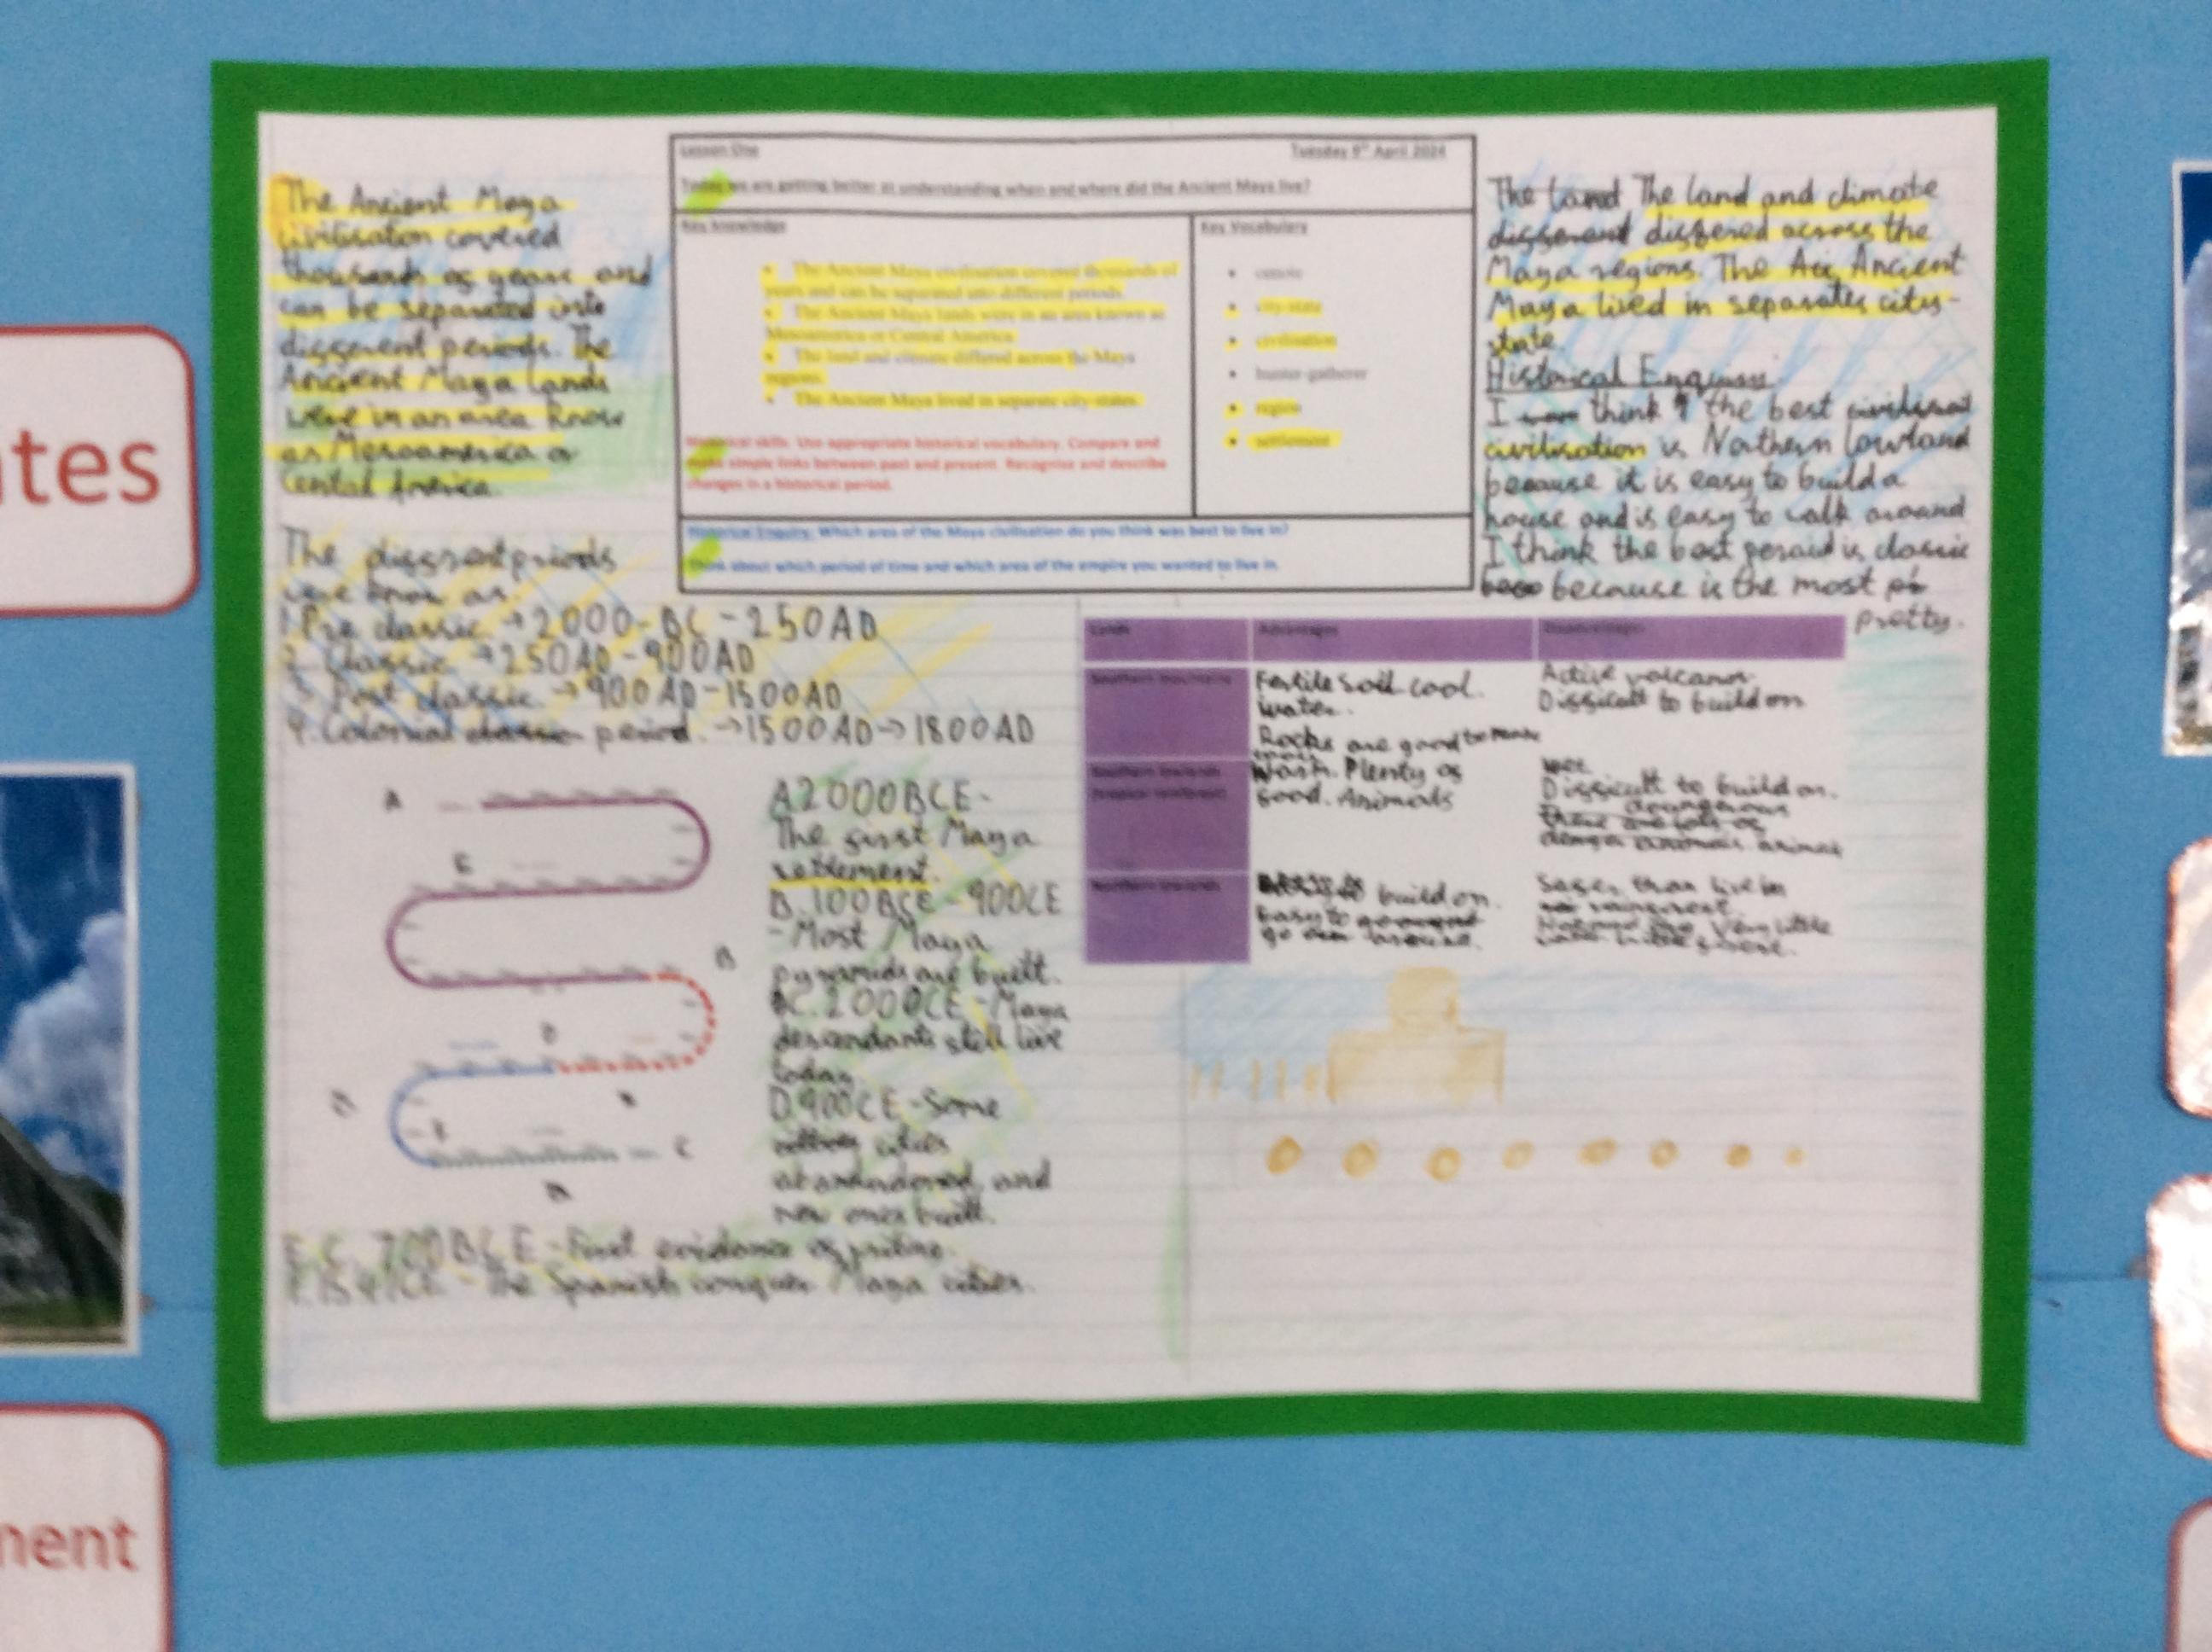 The Ancient Maya
civilisation covered
thousands of years and
can be separated into
different periods. The
Ancient Maya lands
were in an area know
as Mesoamerica or
Cental America.
The diffrent periods
were know as
1. Pre classic → 2000-BC - 250AD
2. Classic → 250AD - 900AD
3. Post classic → 900AD - 1500AD
4. Colonial classic period. → 1500AD → 1800AD
A
E
B
D
C
A 2000BCE-
The first Maya
settlement.
B. 100BCE - 900CE
- Most Maya
pyramids are built.
C. 2000CE - Maya
descendants still live
today
D. 900CE - Some
cities
abandoned, and
new ones built.
E. 700BCE - First evidence of writing.
F. 1541CE - The Spanish conquer Maya cities.
Lesson One
Tuesday 9th April 2024
Today we are getting better at understanding when and where did the Ancient Maya live?
Key Knowledge
• The Ancient Maya civilisation covered thousands of
years and can be separated into different periods.
• The Ancient Maya lands were in an area known as
Mesoamerica or Central America
• The land and climate differed across the Maya
regions.
• The Ancient Maya lived in separate city-states.
Historical skills: Use appropriate historical vocabulary. Compare and
make simple links between past and present. Recognise and describe
changes in a historical period.
Key Vocabulary
• city-state
• civilisation
• hunter-gatherer
• region
• settlement
Historical Enquiry: Which area of the Maya civilisation do you think was best to live in?
Think about which period of time and which area of the empire you wanted to live in.
The land The land and climate
differed across the
Maya regions. The Ancient
Maya lived in separate city-
state
Historical Enquiry
I think the best
civilisation is Northern lowland
because it is easy to build a
house and is easy to walk around
I think the best peroid is classic
because is the most
pretty.
Lands
Advantages
Disadvantages
Southern mountains
Fertile soil cool.
water.
Rocks are good to make
Active volcanos.
Difficult to build on
Southern lowlands
(tropical rainforest)
Plenty of
food. Animals
wet
Difficult to build on.
dangerous
animals
Northern lowlands
build on.
Easy to
go around.
Safer than live in
rainforest
Hot and Dry. Very little
ates
nent